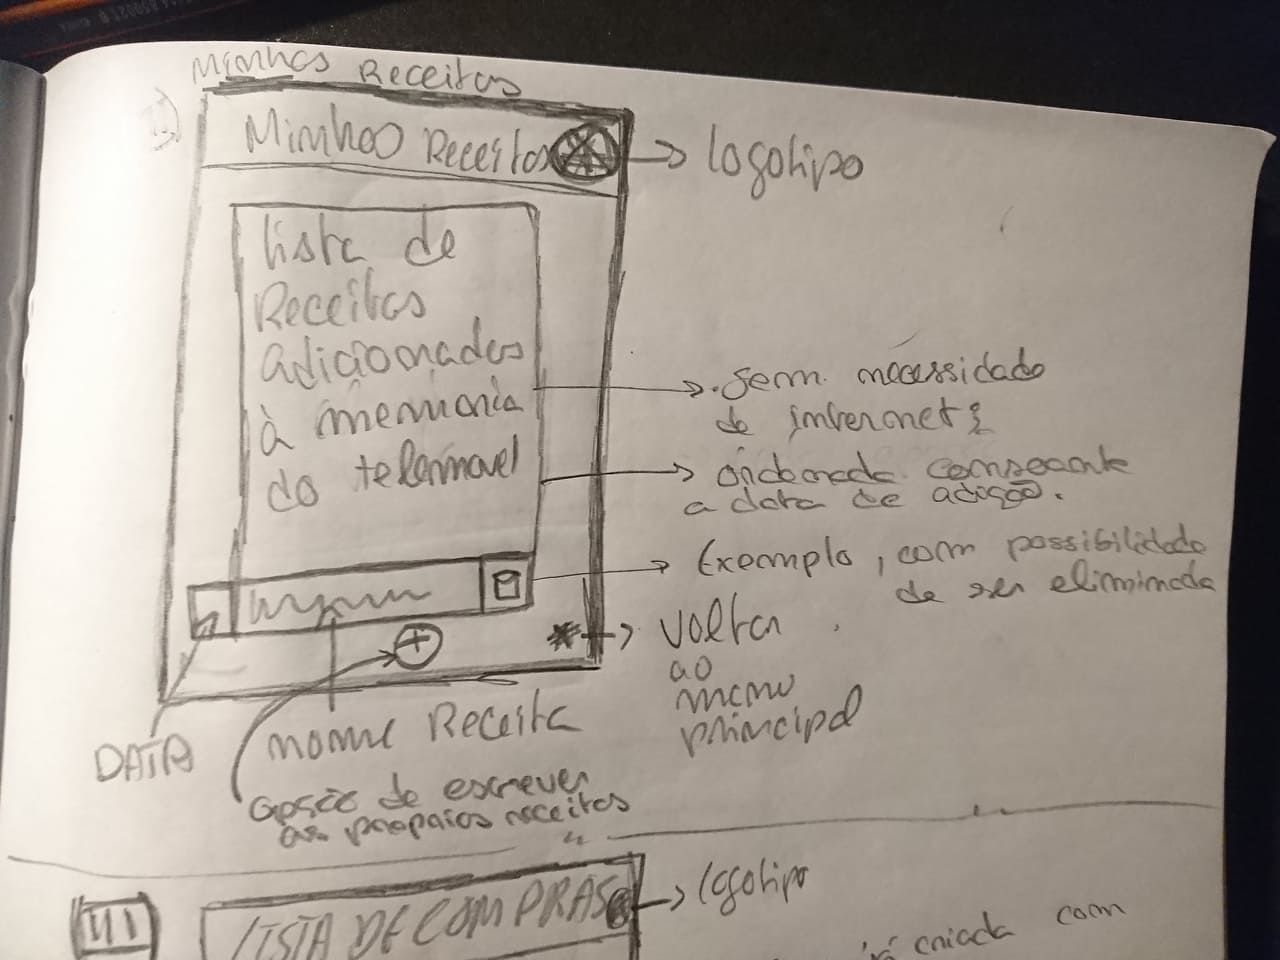 Minhas Receitas
Minhas Receitas
logotipo
lista de
Receitas
adicionadas
à memoria
do telemovel
. Sem necessidade
de internet
ordenada consoante
a data de adição.
Exemplo, com possibilidade
de ser eliminada
volta
ao
menu
principal
DATA
nome Receita
opsão de escrever
as propaias receitas
III
LISTA DE COMPRAS
logotipo
criada com